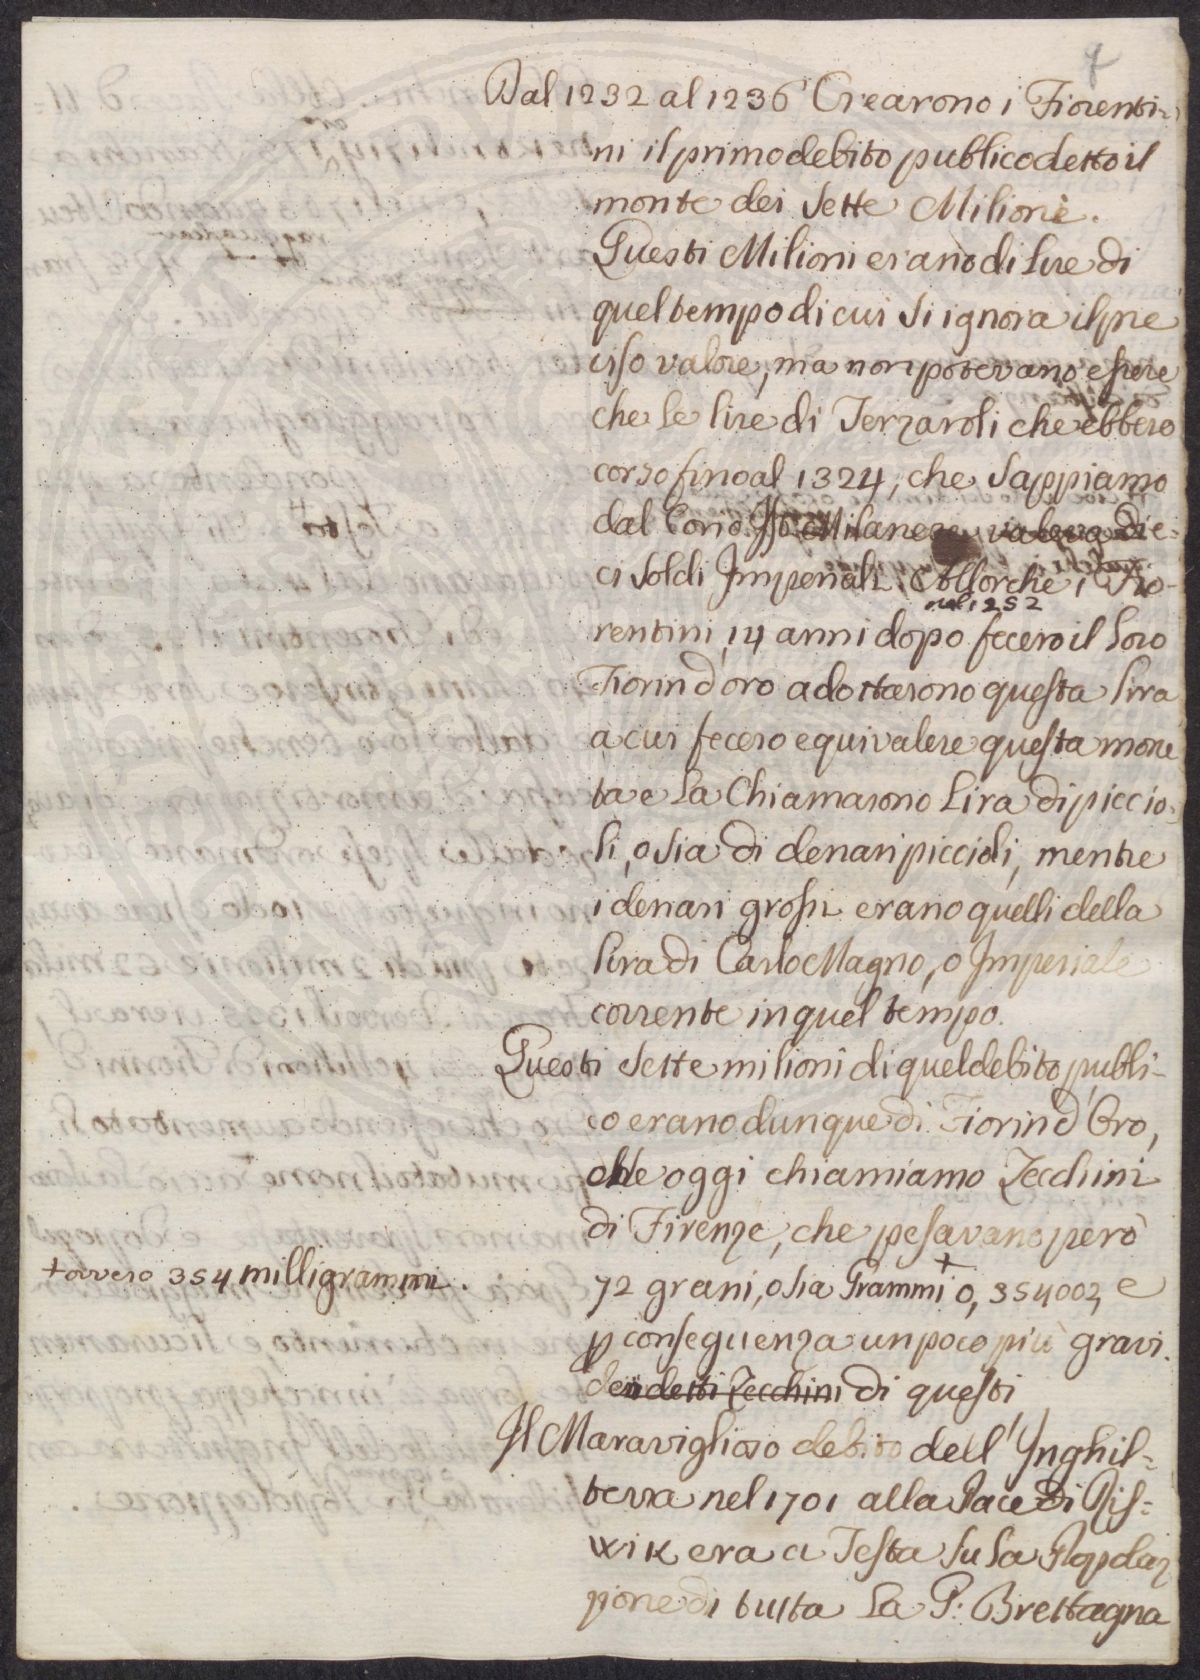 Dal 1232 al 1236 Crearono i Fiorenti-
ni il primo debito publico detto il
monte dei Sette Milioni.
Questi Milioni erano di Lire di
quel tempo di cui si ignora il pre
ciso valore, ma non potevano essere
che le lire di Terzaroli che ebbero
corso fino al 1324, che Sappiamo
dal Corio Milanese valeva Die-
ci Soldi Imperiali. Allorche i Fio-
nel 1252
rentini 14 anni dopo fecero il Loro
Fiorin d'oro adottarono questa Lira
a cui fecero equivalere questa mone
ta e La Chiamarono Lira di piccio-
li, o sia di denari piccioli, mentre
i denari grossi erano quelli della
lira di Carlo Magno, o Imperiale
corrente in quel tempo.
Questi Sette milioni di quel debito publi-
co erano dunque di Fiorin d'Oro,
che oggi chiamiamo Zecchini
di Firenze, che pesavano però
72 grani, o sia Grammi + 0, 354002 e
+ ovvero 354 milligrammi.
p conseguenza un poco più gravi
dei detti Zecchini di questi
Il Maraviglioso debito dell' Inghil-
terra nel 1701 alla Pace di Ris-
wik era a Testa Su La Popolaz
zione di tutta La G: Brettagna